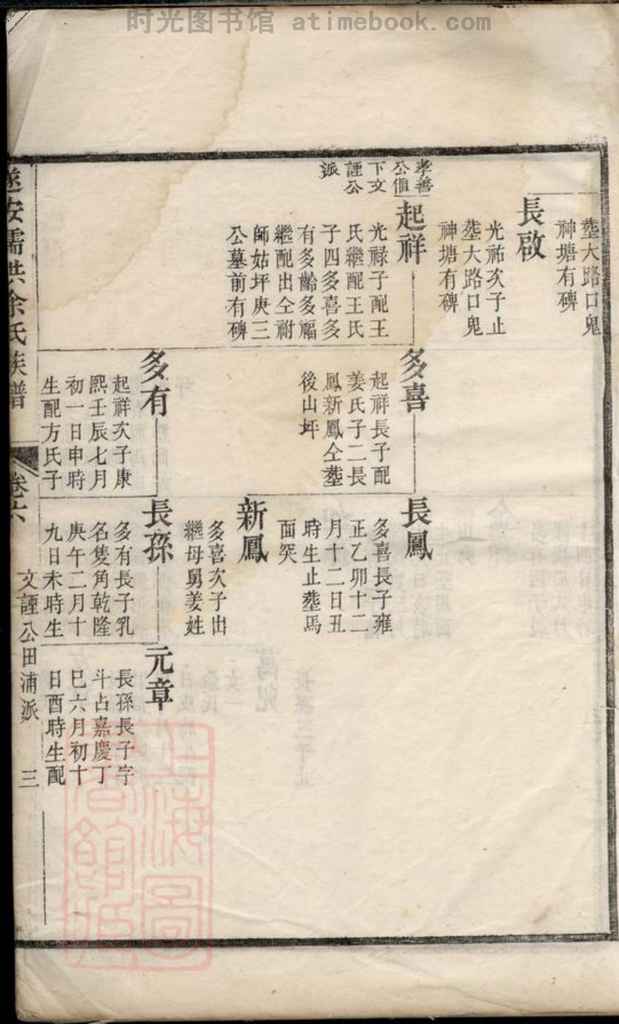 时光图书馆 atimebook.com
塟大路口鬼
神塘有碑
長啟
光祐次子止
塟大路口鬼
神塘有碑
孝善
公值
下文
諲公
派
起祥
光祿子配王
氏繼配王氏
子四多喜多
有多齡多福
繼配出仝祔
師姑坪庚三
公墓前有碑
多喜
起祥長子配
姜氏子二長
鳳新鳳仝塟
後山坪
多有
起祥次子康
熙壬辰七月
初一日申時
生配方氏子
長鳳
多喜長子雍
正乙卯十二
月十二日丑
時生止塟馬
面突
新鳳
多喜次子出
繼母舅姜姓
長孫
多有長子乳
名隻角乾隆
庚午二月十
九日未時生
元章
長孫長子字
斗占嘉慶丁
巳六月初十
日酉時生配
遂安儒洪余氏族譜
卷六
文諲公田浦派
三
上海圖
書館藏